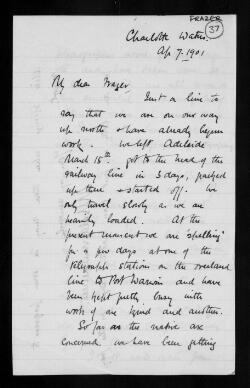 FRAZER
37
Charlotte Waters.
Ap 7. 1901
My dear Frazer
Just a line to
say that we are on our way
up north & have already begun
work. We left Adelaide
March 15th got to the head of the
railway line in 3 days, packed
up there & started off. We
only travel slowly as we are
heavily loaded. At the
present moment we are 'spelling'
for a few days at one of the
telegraph stations on the overland
line to Port Darwin and have
been kept pretty busy with
work of one kind and another.
So far as the natives are
concerned we have been getting